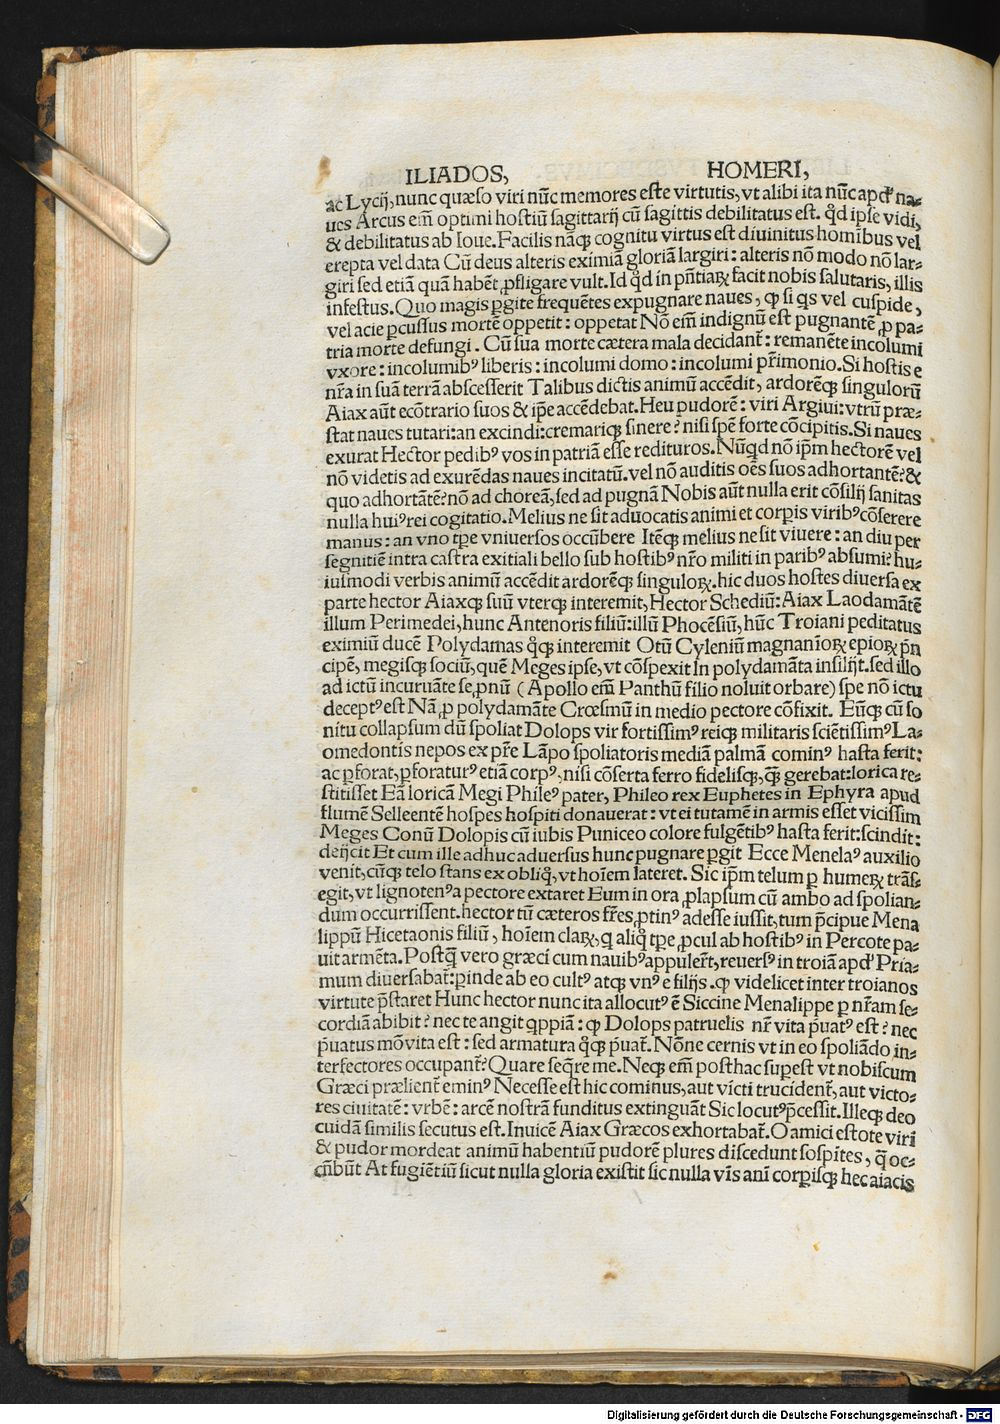 ILIADOS, HOMERI,
ac Lycij, nunc quæso viri nũc memores este virtutis, vt alibi ita nũc apđ na-
ues Arcus em̃ optimi hostiũ sagittarij cũ sagittis debilitatus est. qđ ipse vidi,
& debilitatus ab Ioue. Facilis nãqꝫ cognitu virtus est diuinitus homĩbus vel
erepta vel data Cũ deus alteris eximiã gloriã largiri: alteris nõ modo nõ lar-
giri sed etiã quã habẽt ꝓfligare vult. Id qđ in pñtiaꝝ facit nobis salutaris, illis
infestus. Quo magis ꝑgite frequẽtes expugnare naues, ꝙ si qs vel cuspide,
vel acie ꝑcussus mortẽ oppetit: oppetat Nõ em̃ indignũ est pugnantẽ ꝓ pa-
tria morte defungi. Cũ sua morte cætera mala decidant̃: remanẽte incolumi
vxore: incolumibꝰ liberis: incolumi domo: incolumi pr̃imonio. Si hostis e
nr̃a in suã terrã abscesserit Talibus dictis animũ accẽdit, ardorẽqꝫ singulorũ
Aiax aũt ecõtrario suos & ip̃e accẽdebat. Heu pudorẽ: viri Argiui: vtrũ præ-
stat naues tutari: an excindi: cremariqꝫ sinere? nisi spẽ forte cõcipitis. Si naues
exurat Hector pedibꝰ vos in patriã esse redituros. Nũqd nõ ip̃m hectorẽ vel
nõ videtis ad exurẽdas naues incitatũ. vel nõ auditis oẽs suos adhortantẽ? &
quo adhortãtẽ? nõ ad choreã, sed ad pugnã Nobis aũt nulla erit cõsilij sanitas
nulla huiꝰ rei cogitatio. Melius ne sit aduocatis animi et corꝑis viribꝰ cõserere
manus: an vno tꝑe vniuersos occũbere Itẽqꝫ melius ne sit viuere: an diu per
segnitiẽ intra castra exitiali bello sub hostibꝰ nr̃o militi in paribꝰ absumi? hu-
iusmodi verbis animũ accẽdit ardorẽqꝫ singuloꝝ. hic duos hostes diuersa ex
parte hector Aiaxqꝫ suũ vterqꝫ interemit, Hector Schediũ: Aiax Laodamãtẽ
illum Perimedei, hunc Antenoris filiũ: illũ Phocẽsiũ, hũc Troiani peditatus
eximiũ ducẽ Polydamas qq̃ꝫ interemit Otũ Cyleniũ magnanĩoꝝ epioꝝ pñ
cipẽ, megisqꝫ sociũ, quẽ Meges ipse, vt cõspexit In polydamãta insilijt. sed illo
ad ictũ incuruãte se, ꝓnũ (Apollo em̃ Panthũ filio noluit orbare) spe nõ ictu
deceptꝰ est Nã, ꝓ polydamãte Crœsmũ in medio pectore cõfixit. Eũqꝫ cũ so
nitu collapsum dũ spoliat Dolops vir fortissimꝰ reiqꝫ militaris sciẽtissimꝰ La-
omedontis nepos ex pr̃e Lãpo spoliatoris mediã palmã cominꝰ hasta ferit:
ac ꝑforat, ꝑforaturꝰ etiã corpꝰ, nisi cõserta ferro fidelisqꝫ, q̃ꝫ gerebat: lorica re-
stitisset Eã loricã Megi Phileꝰ pater, Phileo rex Euphetes in Ephyra apud
flumẽ Selleentẽ hospes hospiti donauerat: vt ei tutamẽ in armis esset vicissim
Meges Conũ Dolopis cũ iubis Puniceo colore fulgẽtibꝰ hasta ferit: scindit:
deijcit Et cum ille adhuc aduersus hunc pugnare ꝑgit Ecce Menelaꝰ auxilio
venit, cũqꝫ telo stans ex obliq̃, vt hoĩem lateret. Sic ip̃m telum ꝑ humeꝝ trãs-
egit, vt lignotenꝰ a pectore extaret Eum in ora ꝓlapsum cũ ambo ad spolian-
dum occurrissent. hector tũ cæteros fr̃es, ꝓtinꝰ adesse iussit, tum p̃cipue Mena
lippũ Hicetaonis filiũ, hoĩem claꝝ, q aliq̃ tꝑe ꝓcul ab hostibꝰ in Percote pa-
uit armẽta. Postq̃ vero græci cum nauibꝰ appuler̃t, reuersꝰ in troiã apđ Pria-
mum diuersabat̃: ꝑinde ab eo cultꝰ atqꝫ vnꝰ e filijs. ꝙ videlicet inter troianos
virtute p̃staret Hunc hector nunc ita allocutꝰ ẽ Siccine Menalippe ꝑ nr̃am se-
cordiã abibit? nec te angit qppiã: ꝙ Dolops patruelis nr̃ vita p̃uatꝰ est? nec
p̃uatus mõ vita est: sed armatura qq̃ꝫ p̃uat̃. Nõne cernis vt in eo spoliãdo in-
terfectores occupant̃? Quare seq̃re me. Neqꝫ em̃ posthac suꝑest vt nobiscum
Græci prælient̃ eminꝰ Necesse est hic cominus, aut victi trucident̃, aut victo-
res ciuitatẽ: vrbẽ: arcẽ nostrã funditus extinguãt Sic locutꝰ p̃cessit. Illeqꝫ deo
cuidã similis secutus est. Inuicẽ Aiax Græcos exhortabat̃. O amici estote viri
& pudor mordeat animũ habentiũ pudorẽ plures discedunt sospites, q̃ oc-
cũbũt At fugiẽtiũ sicut nulla gloria existit sic nulla vis ani corꝑisqꝫ hec aiacis
Digitalisierung gefördert durch die Deutsche Forschungsgemeinschaft - DFG